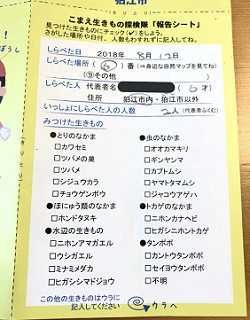 狛江市
こまえ生きもの探検隊「報告シート」
見つけた生きものにチェック(✓)をしよう。
さがした場所や日付、人数もわすれずに記入してね。
しらべた日 2018年 8月12日
しらべた場所 (6)番 (⇒身近な自然マップを見てね)
⑨その他
しらべた人 代表者名 ( 6才)
住所 狛江市内・狛江市以外
いっしょにしらべた人の人数 2人(代表者ふくむ)
みつけた生きもの
●とりのなかま
□カワセミ
□ツバメの巣
□ツバメ
□シジュウカラ
□チョウゲンボウ
●ほにゅう類のなかま
□ホンドタヌキ
●水辺の生きもの
□ニホンアマガエル
□ウシガエル
□ミナミメダカ
□ヒガシシマドジョウ
●虫のなかま
□オオカマキリ
□ギンヤンマ
□カブトムシ
□ヤマトタマムシ
□ジャコウアゲハ
●トカゲのなかま
□ニホンカナヘビ
□ヒガシニホントカゲ
●タンポポ
□カントウタンポポ
□セイヨウタンポポ
□不明
この他の生きものはウラに
記入してください
ウラへ